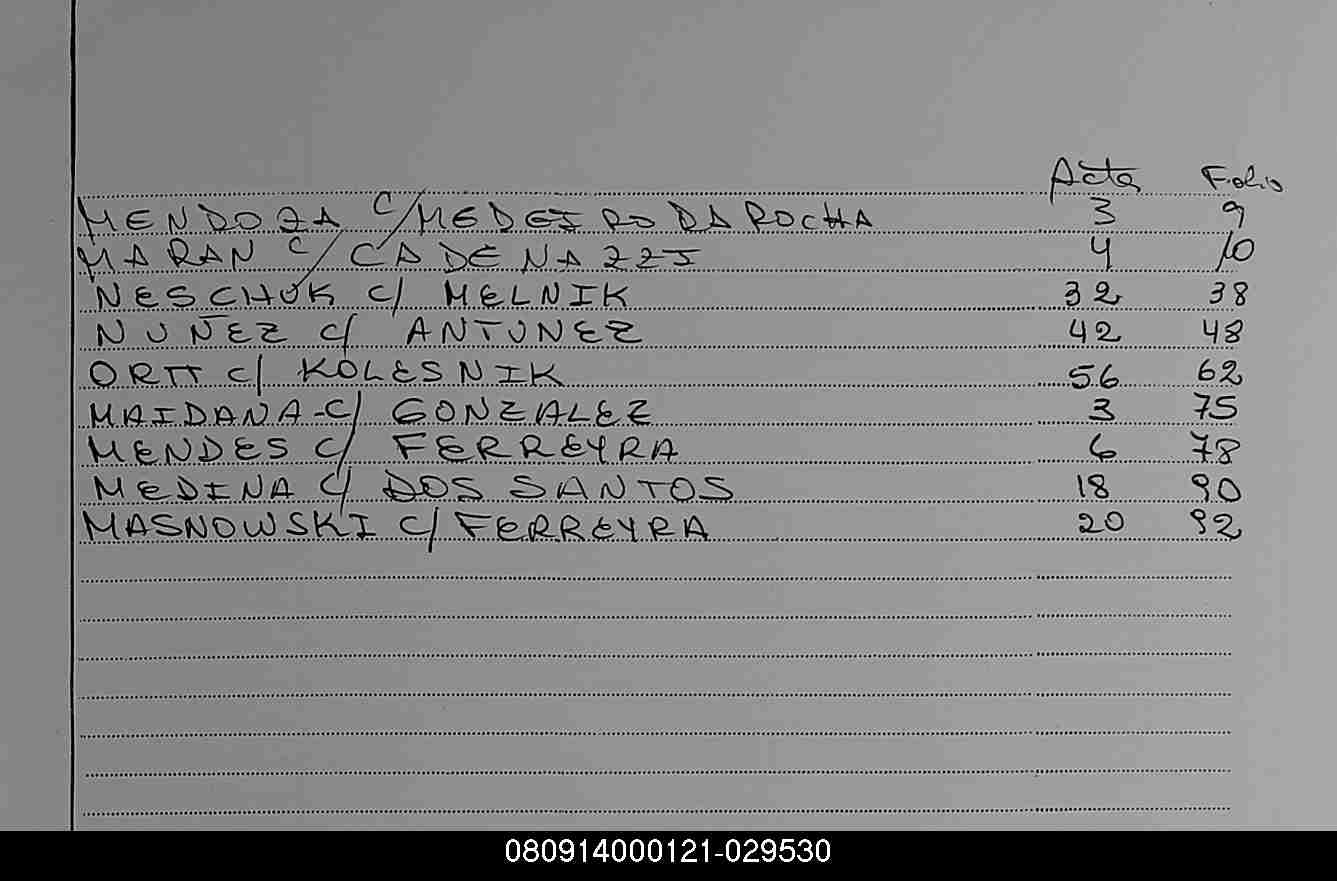 Acta Folio
MENDOZA C/ MEDEIRO DA ROCHA 3 9
MARAN C/ CADENAZZI 4 10
NESCHUK C/ MELNIK 32 38
NUÑEZ C/ ANTUNEZ 42 48
ORTT C/ KOLESNIK 56 62
MAIDANA - C/ GONZALEZ 3 75
MENDES C/ FERREYRA 6 78
MEDINA C/ DOS SANTOS 18 90
MASNOWSKI C/ FERREYRA 20 92
080914000121-029530